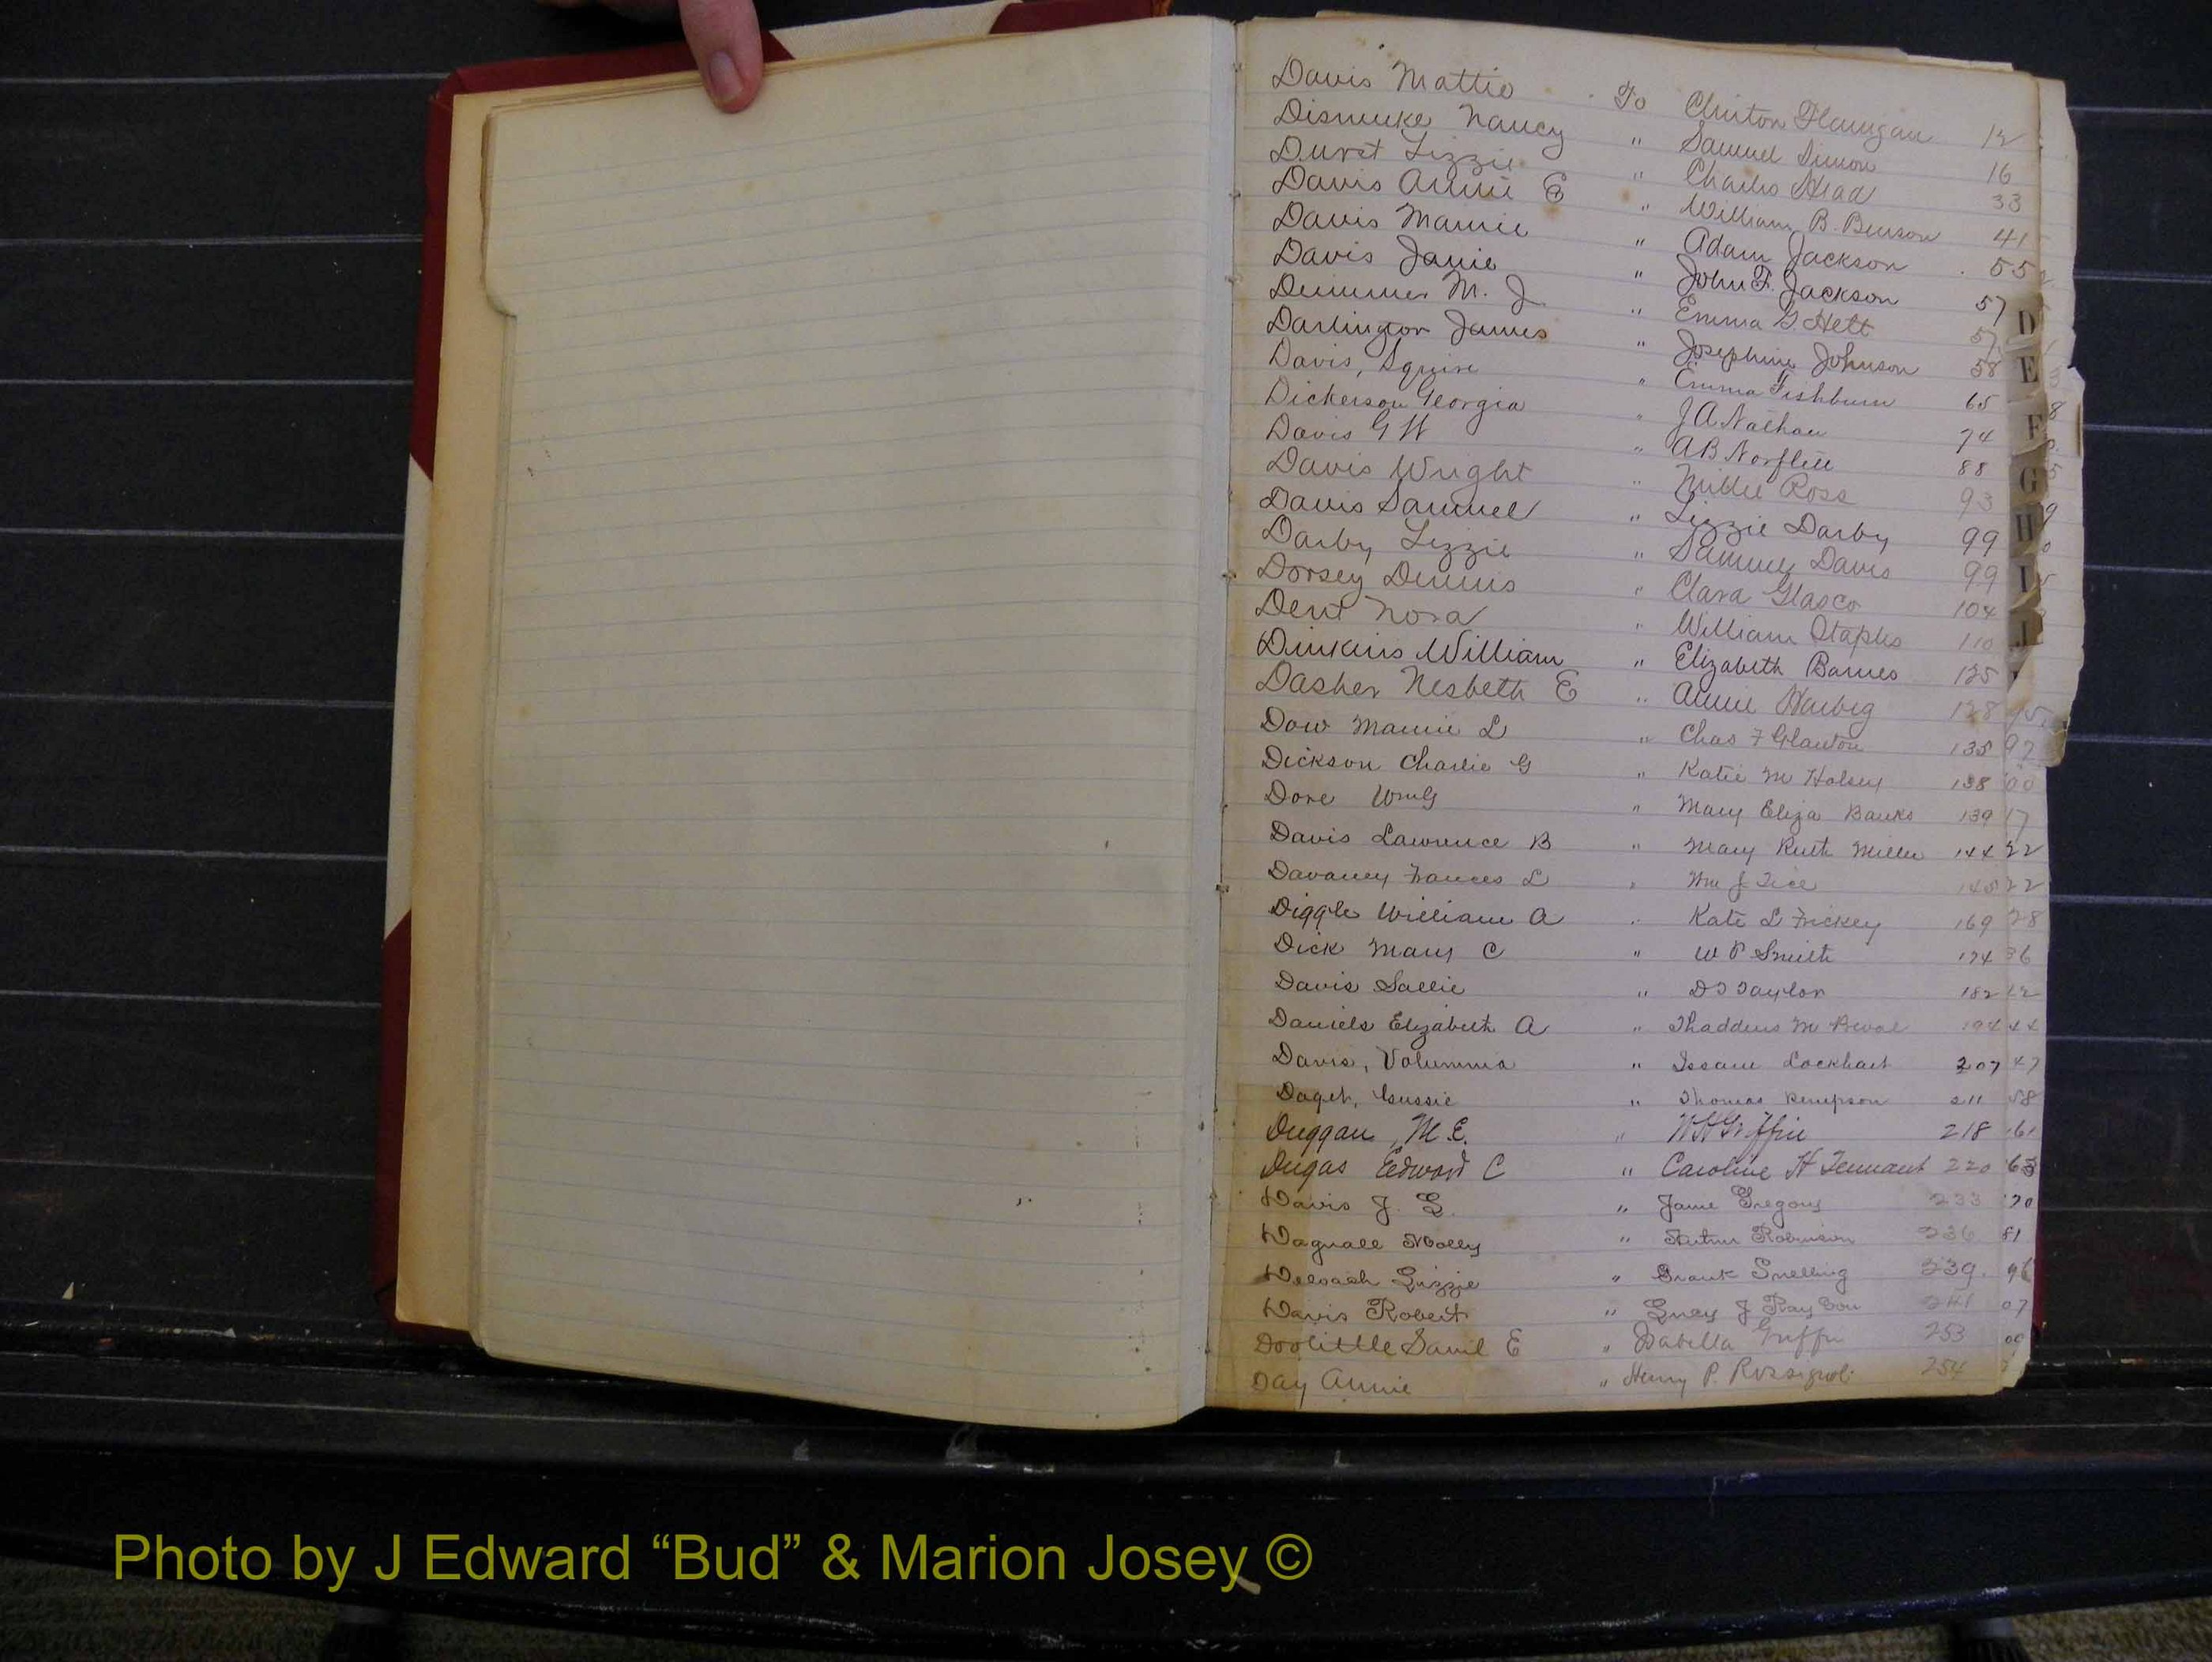 Davis Mattie To Clinton Flanigan 12
Dismuke Nancy " Samuel Simon 16
Durst Lizzie " Charles Head 33
Davis Annie E " William B. Benson 41
Davis Mamie " Adam Jackson 55
Davis Janie " John F. Jackson 57
M. J " Emma G. Hett 57
Darlington James " Josephine Johnson 58
Davis, Squire " Emma Fishburn 65
Dickerson Georgia " J A Nathan 74
Davis G W " A B Norflett 88
Davis Wright " Millie Ross 93
Davis Samuel " Lizzie Darby 99
Darby, Lizzie " Samuel Davis 99
Dorsey Dennis " Clara Glasco 104
Dent Nora " William Staples 110
Dinkins William " Elizabeth Barnes 125
Dasher Nesbeth E " Annie Harbig 128
Dow Mamie L " Chas F Glanton 135
Dickson Charlie G " Katie M Halsey 138
Dore Wm G " Mary Eliza Banks 139
Davis Lawrence B " Mary Ruth Miller 144
Davaney Frances L " Wm J Tice 145
Diggle William A " Kate L Frickey 169
Dick Mary C " W P Smith 174
Davis Sallie " D T Taylor 182
Daniels Elizabeth A " Thaddeus M 194
Davis, Volumnia " Lockhart 207
Gussie " Thomas Kempson 211
Duggan, M. E. " W H Griffin 218
Dugas Edward C " Caroline H Tennant 220
Davis J. E. " Janie Gregory 233
Dagnall Molly " Arthur Robinson 236
Lizzie " Frank Snelling 239
Davis Robert " Lucy J 241
Doolittle E " Isabella Griffin 253
Day Annie " Henry P. Rossignol 254
D
E
F
G
H
I
J
Photo by J Edward “Bud” & Marion Josey ©